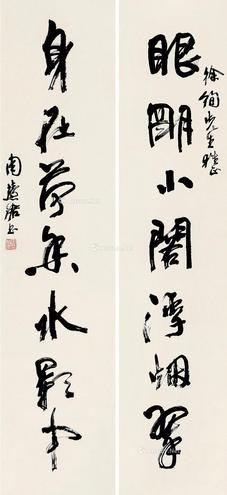 徐先生雅正
眼明小閣浮烟翠
身在荷香水影中
周慧珺书